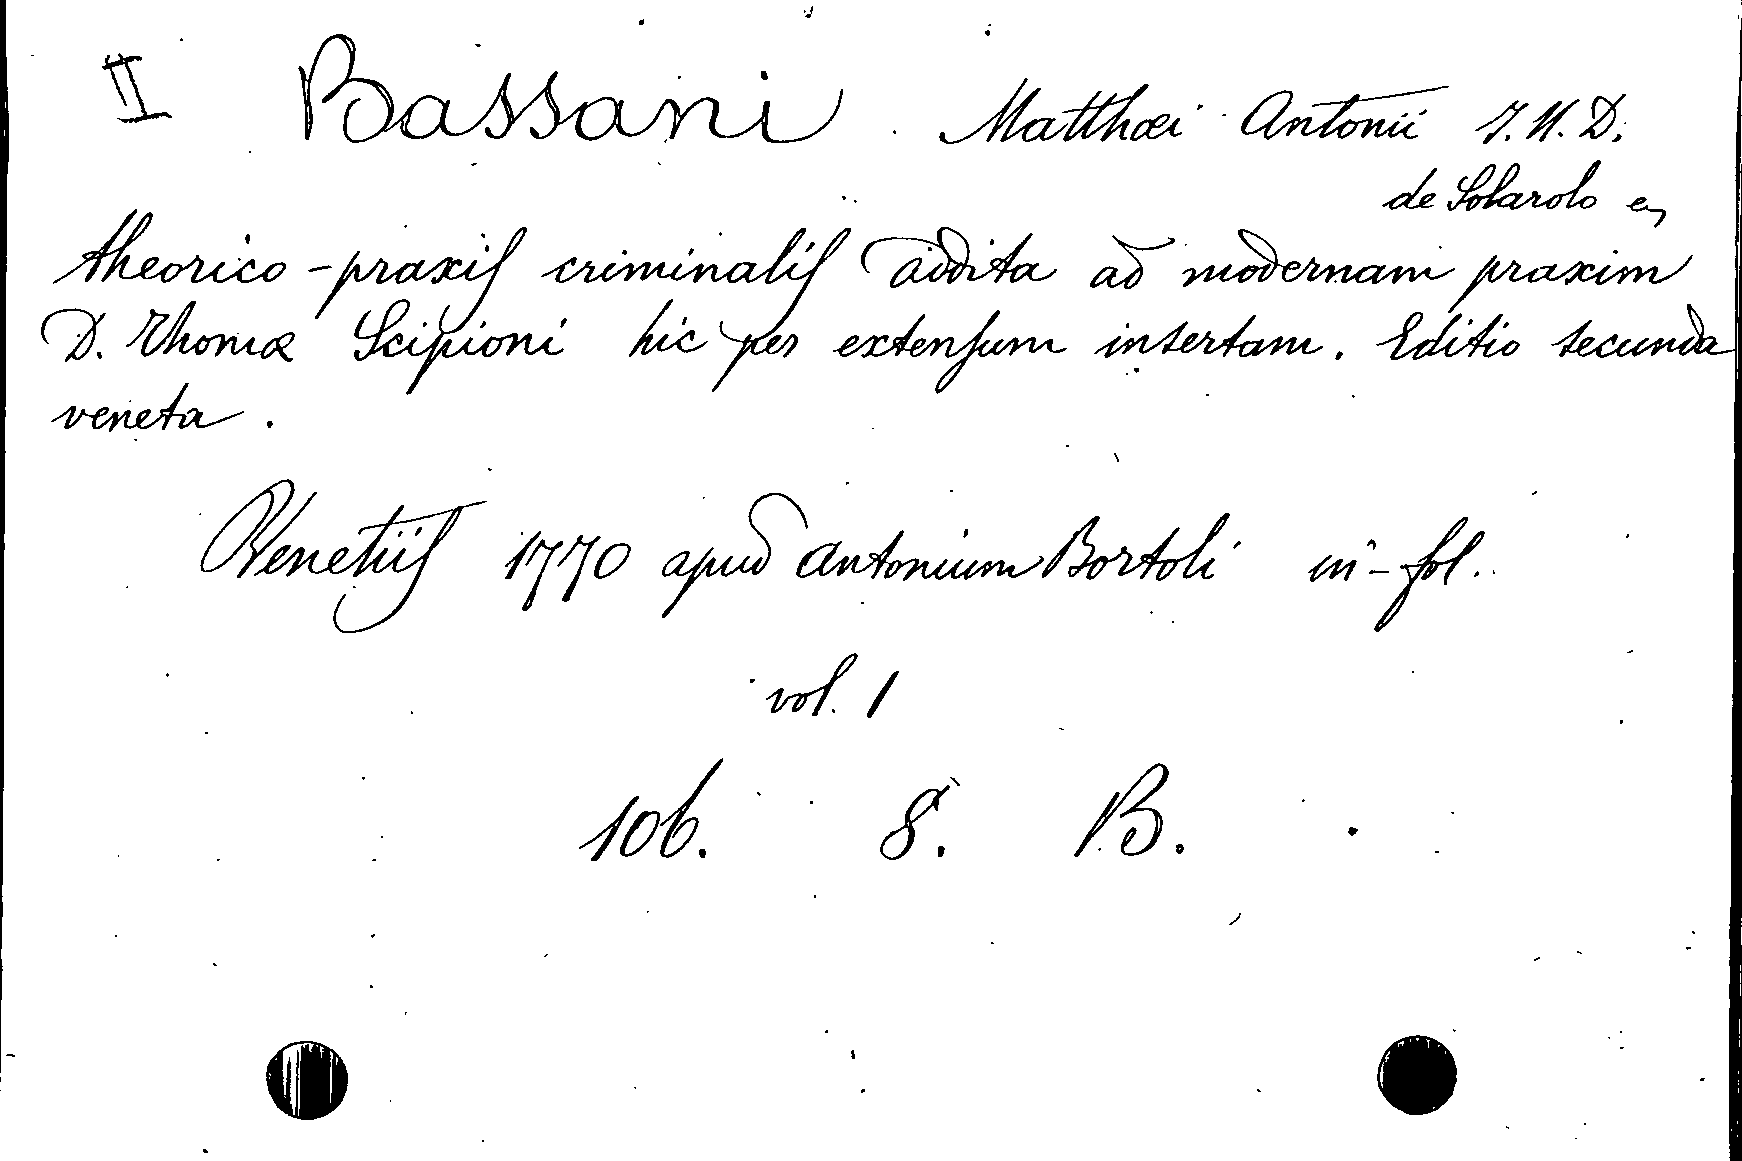 II Bassani Matthæi Antonii J. U. D.
de Solarolo
theorico-praxis criminalis addita ad modernam praxim
D. Thomæ Scipioni hic per extensum insertam. Editio secunda
veneta.
Venetiis 1770 apud Antonium Bortoli in-fol.
vol. 1
106. 8. B.